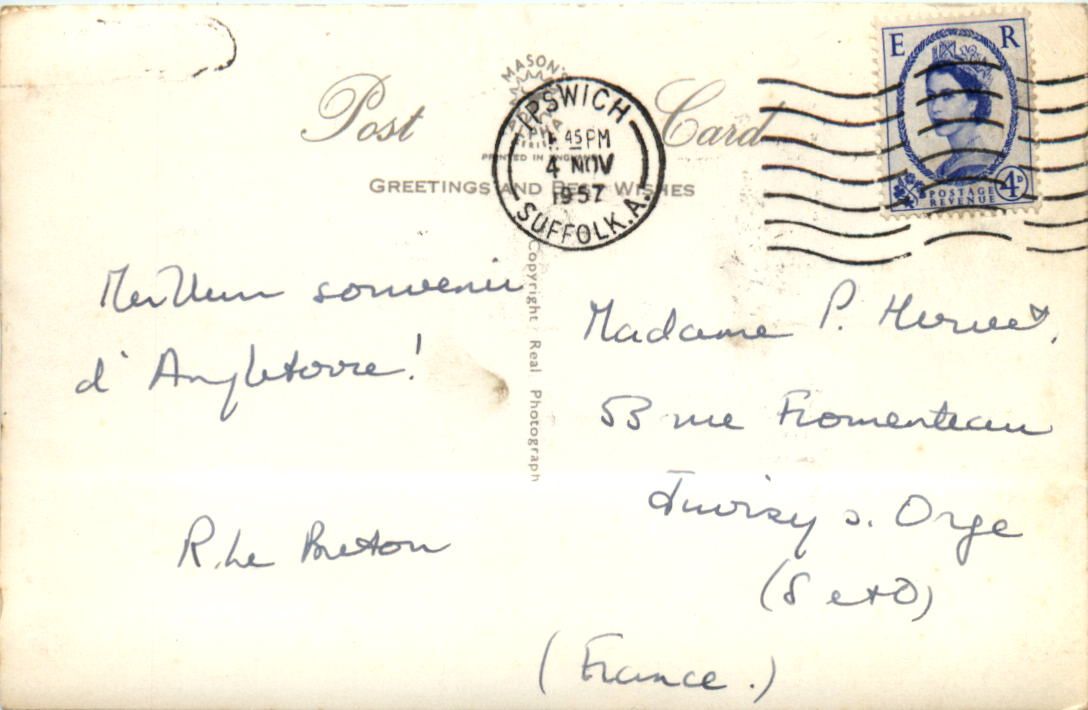 Post Card
MASON'S
ALPHA
SERIES
PRINTED IN ENGLAND
GREETINGS AND BEST WISHES
IPSWICH
45 PM
4 NOV
1957
SUFFOLK.A.
E R
POSTAGE
REVENUE
4D
Copyright Real Photograph
Meilleur souvenir
d'Angleterre!
R. Le Breton
Madame P. Hervet.
53 rue Fromenteau
Juvisy s. Orge
(S et O)
(France.)